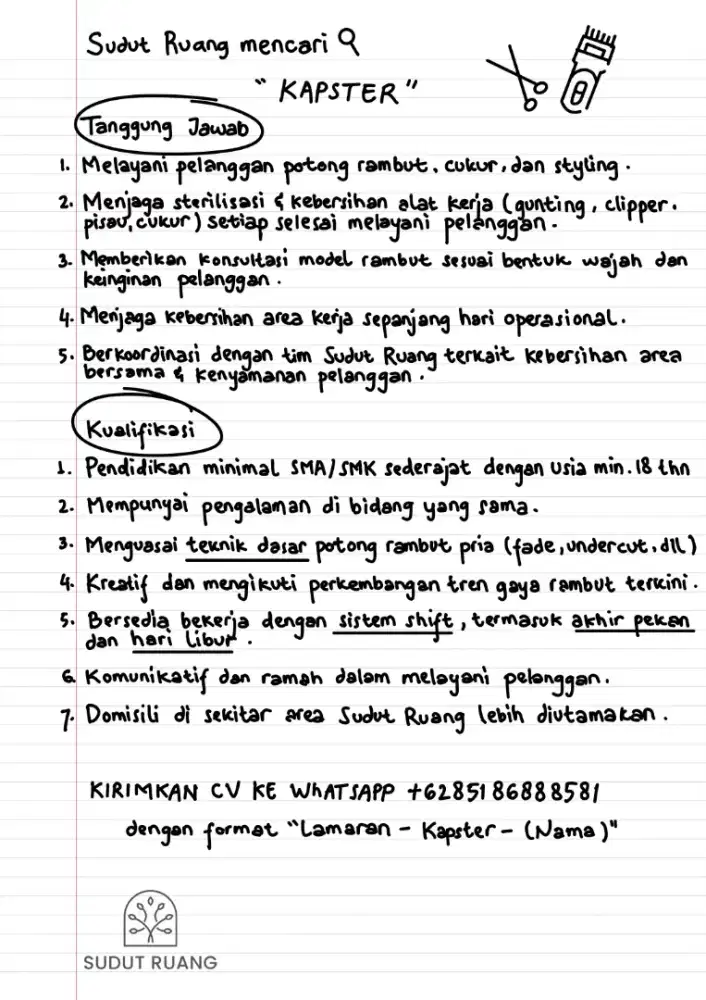 Sudut Ruang mencari
"KAPSTER"
Tanggung Jawab
1. Melayani pelanggan potong rambut, cukur, dan styling.
2. Menjaga sterilisasi & kebersihan alat kerja (gunting, clipper,
pisau, cukur) setiap selesai melayani pelanggan.
3. Memberikan konsultasi model rambut sesuai bentuk wajah dan
keinginan pelanggan.
4. Menjaga kebersihan area kerja sepanjang hari operasional.
5. Berkoordinasi dengan tim Sudut Ruang terkait kebersihan area
bersama & kenyamanan pelanggan.
Kualifikasi
1. Pendidikan minimal SMA/SMK sederajat dengan usia min. 18 thn
2. Mempunyai pengalaman di bidang yang sama.
3. Menguasai teknik dasar potong rambut pria (fade, undercut, dll)
4. Kreatif dan mengikuti perkembangan tren gaya rambut terkini.
5. Bersedia bekerja dengan sistem shift, termasuk akhir pekan
dan hari libur.
6. Komunikatif dan ramah dalam melayani pelanggan.
7. Domisili di sekitar area Sudut Ruang lebih diutamakan.
KIRIMKAN CV KE WHATSAPP +6285186888581
dengan format "Lamaran - Kapster - (Nama)"
SUDUT RUANG